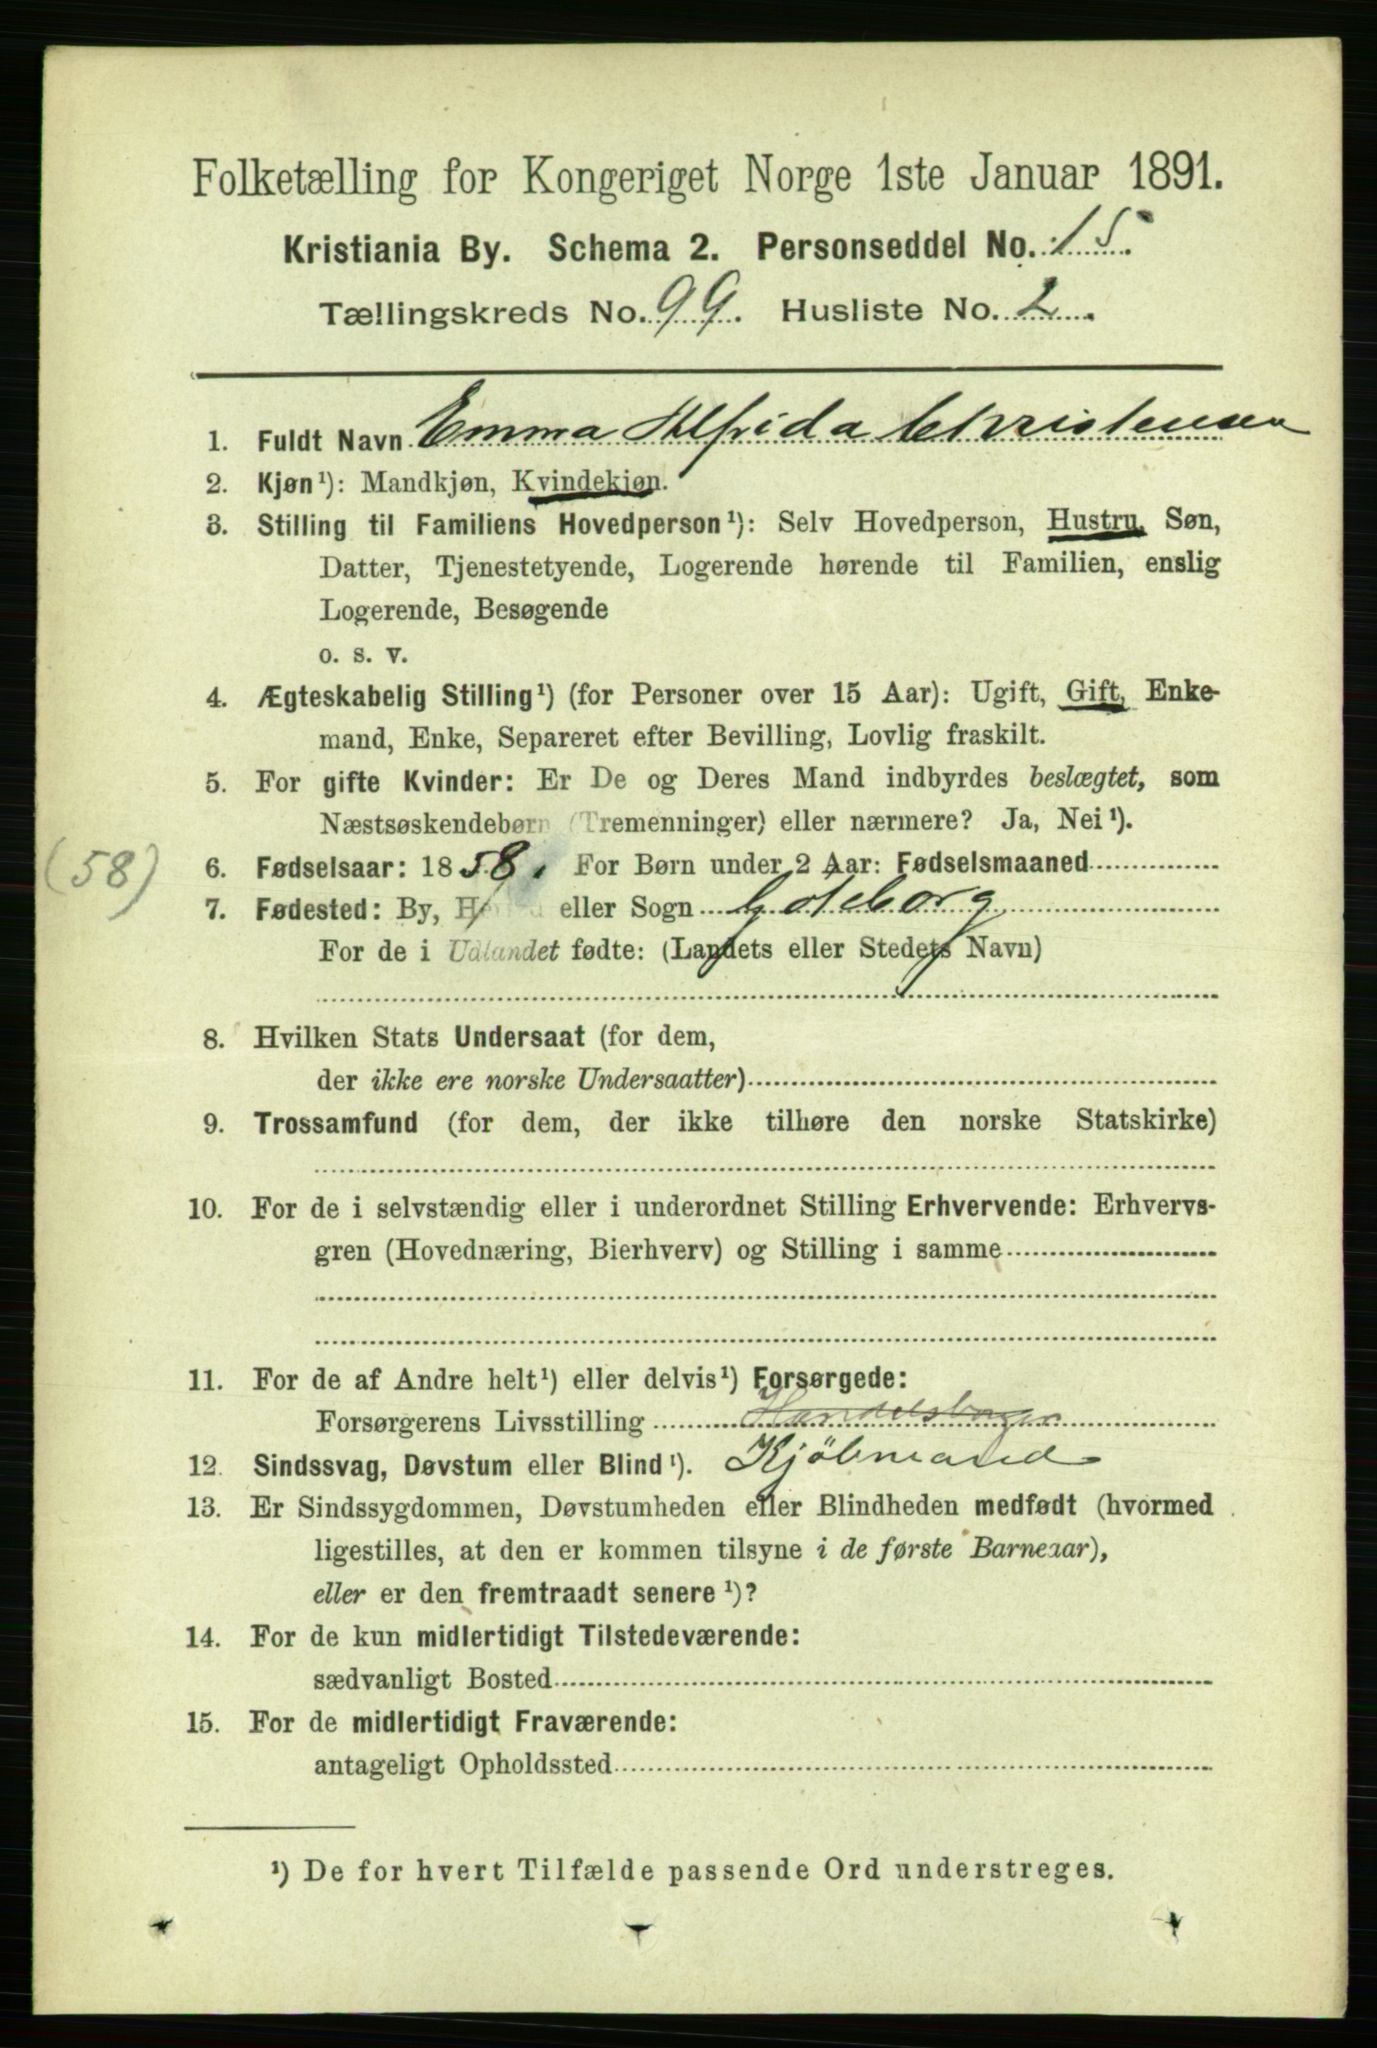 Folketælling for Kongeriget Norge 1ste Januar 1891.
Kristiania By. Schema 2. Personseddel No. 15.
Tællingskreds No. 99. Husliste No. 2.
1. Fuldt Navn Emma Alfrida Christensen
2. Kjøn¹): Mandkjøn, Kvindekjøn.
3. Stilling til Familiens Hovedperson¹): Selv Hovedperson, Hustru, Søn,
Datter, Tjenestetyende, Logerende hørende til Familien, enslig
Logerende, Besøgende
o. s. v.
4. Ægteskabelig Stilling¹) (for Personer over 15 Aar): Ugift, Gift, Enke-
mand, Enke, Separeret efter Bevilling, Lovlig fraskilt.
5. For gifte Kvinder: Er De og Deres Mand indbyrdes beslægtet, som
Næstsøskendebørn (Tremenninger) eller nærmere? Ja, Nei¹).
(58)
6. Fødselsaar: 1858. For Børn under 2 Aar: Fødselsmaaned
7. Fødested: By, Herred eller Sogn Goteborg
For de i Udlandet fødte: (Landets eller Stedets Navn)
8. Hvilken Stats Undersaat (for dem,
der ikke ere norske Undersaatter)
9. Trossamfund (for dem, der ikke tilhøre den norske Statskirke)
10. For de i selvstændig eller i underordnet Stilling Erhvervende: Erhvervs-
gren (Hovednæring, Bierhverv) og Stilling i samme
11. For de af Andre helt¹) eller delvis¹) Forsørgede:
Forsørgerens Livsstilling
12. Sindssvag, Døvstum eller Blind¹). Kjöbmand
13. Er Sindssygdommen, Døvstumheden eller Blindheden medfødt (hvormed
ligestilles, at den er kommen tilsyne i de første Barneaar),
eller er den fremtraadt senere¹)?
14. For de kun midlertidigt Tilstedeværende:
sædvanligt Bosted
15. For de midlertidigt Fraværende:
antageligt Opholdssted
¹) De for hvert Tilfælde passende Ord understreges.